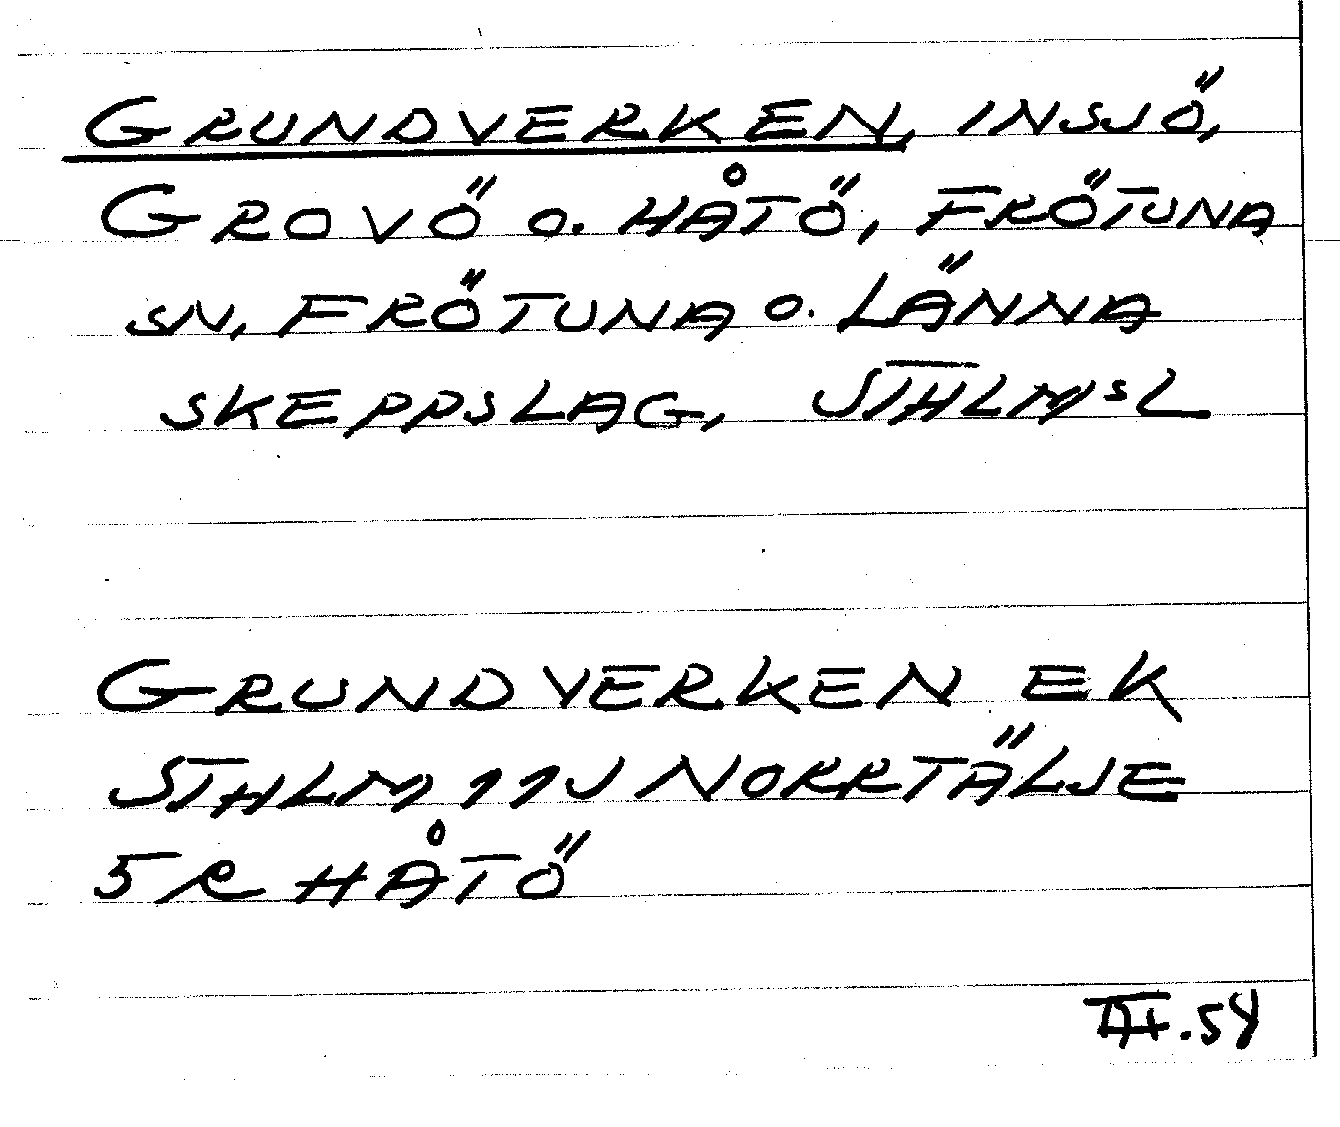 GRUNDVERKEN, INSJÖ,
GROVÖ O. HÅTÖ, FRÖTUNA
SN, FRÖTUNA O. LÄNNA
SKEPPSLAG, STHLMSL
GRUNDVERKEN EK
STHLM 11J NORRTÄLJE
5R HÅTÖ